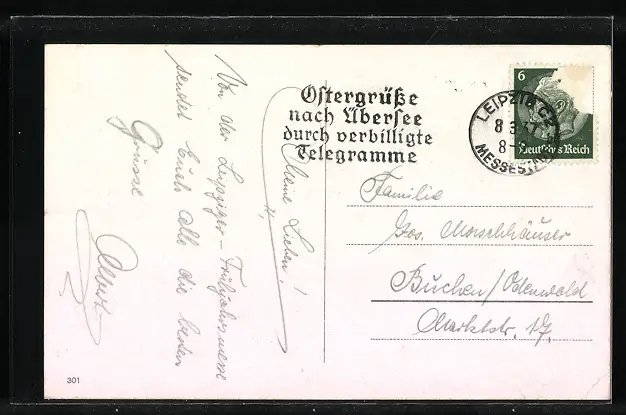 Meine Lieben!
Von der Leipziger-Frühjahrsmesse
sendet Euch alle die besten
Grüsse
Albert
Ostergrüße
nach Übersee
durch verbilligte
Telegramme
LEIPZIG C2
8 3
8-
MESSESTADT
6
Deutsches Reich
Familie
Jos. Morschhäuser
Buchen/Odenwald
Marktstr. 17.
301